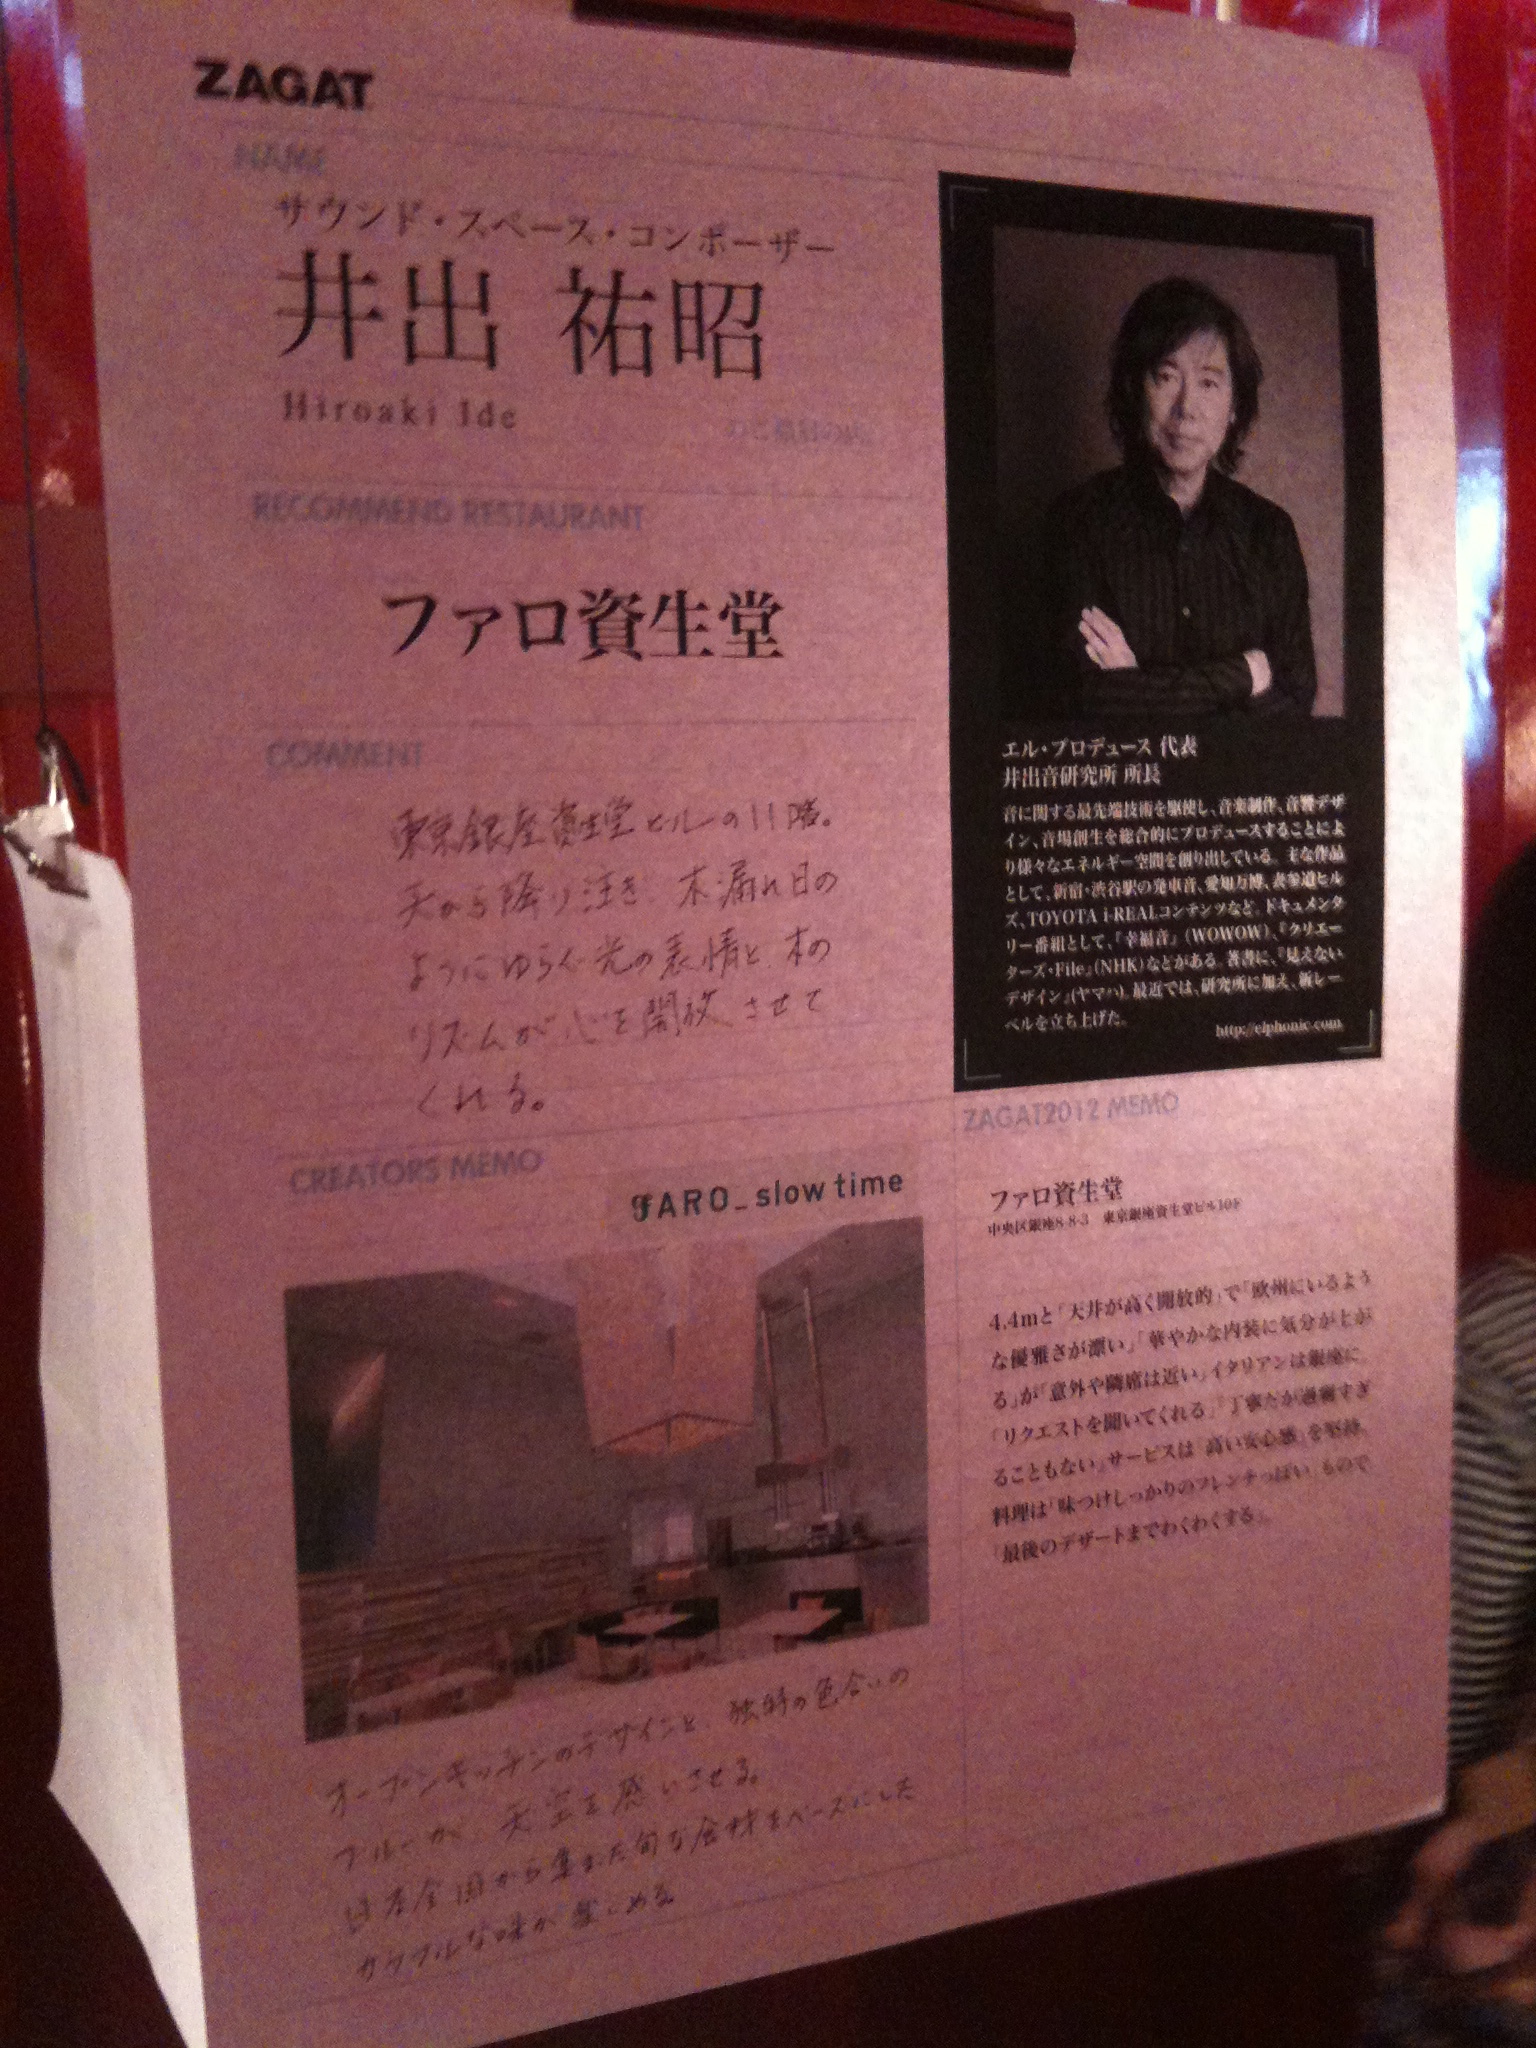 ZAGAT
NAME
サウンド・スペース・コンポーザー
井出 祐昭
Hiroaki Ide
RECOMMEND RESTAURANT
ファロ資生堂
COMMENT
東京銀座資生堂ビルの11階。
天から降り注ぎ、木漏れ日の
ようにゆらぐ光の表情と、木の
リズムが心を開放させて
くれる。
エル・プロデュース 代表
井出音研究所 所長
音に関する最先端技術を駆使し、音楽制作、音響デザ
イン、音場創生を総合的にプロデュースすることによ
り様々なエネルギー空間を創り出している。主な作品
として、新宿・渋谷駅の発車音、愛知万博、表参道ヒル
ズ、TOYOTA i-REALコンテンツなど。ドキュメンタ
リー番組として、「幸福音」(WOWOW)、『クリエー
ターズ・File』(NHK)などがある。著書に、『見えない
デザイン』(ヤマハ)。最近では、研究所に加え、新レー
ベルを立ち上げた。
http://elphonic.com
CREATORS MEMO
FARO_slow time
オープンキッチンのデザインと、独特の色合いの
ブルーが、天空を感じさせる。
日本全国から集めた旬な食材をベースにした
カラフルな味が楽しめる。
ZAGAT2012 MEMO
ファロ資生堂
中央区銀座8-8-3 東京銀座資生堂ビル10F
4.4mと「天井が高く開放的」で「欧州にいるよう
な優雅さが漂い」「華やかな内装に気分が上が
る」が「意外や隣席は近い」イタリアンは銀座に。
「リクエストを聞いてくれる」「丁寧だが過剰すぎ
ることもない」サービスは「高い安心感」を堅持。
料理は「味つけしっかりのフレンチっぽい」もので
「最後のデザートまでわくわくする」。